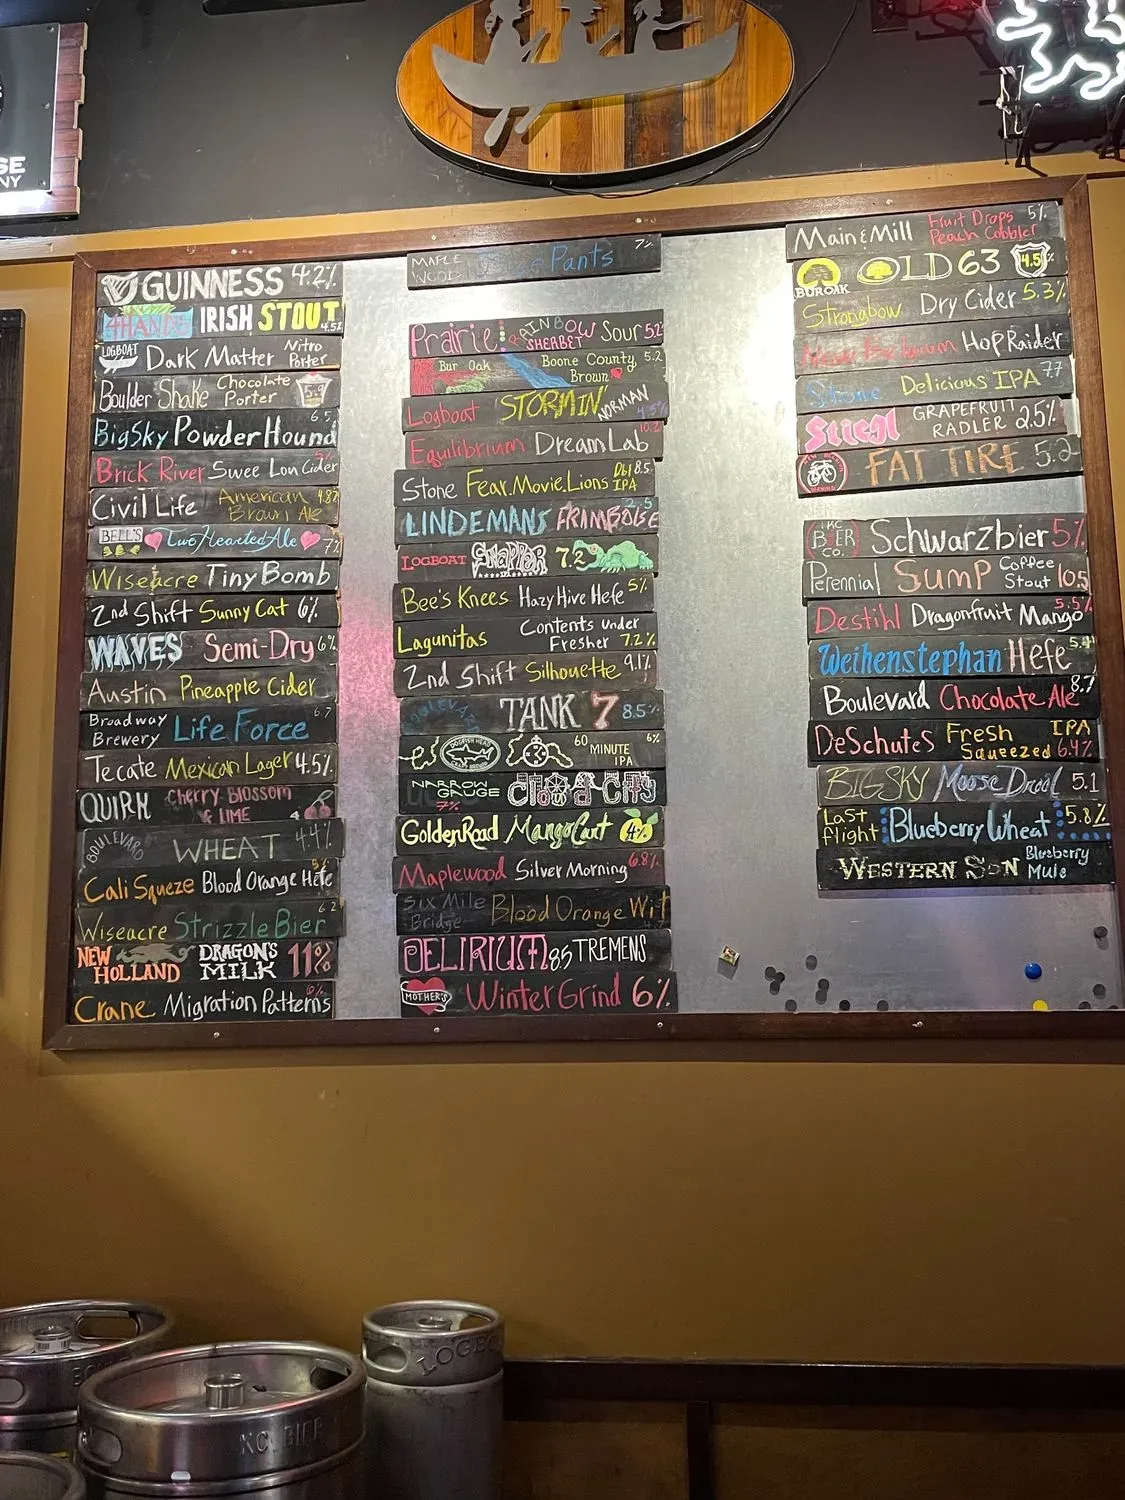 SE
NY
GUINNESS 4.2%
4HANDS IRISH STOUT 4.5%
LOGBOAT Dark Matter Nitro Porter
Boulder Shake Chocolate Porter 5.9
BigSky PowderHound 6.5
Brick River Swee Lou Cider 5%
Civil Life American Brown Ale 4.8%
BELL'S Two Hearted Ale 7%
Wiseacre Tiny Bomb
2nd Shift Sunny Cat 6%
WAVES Semi-Dry 6%
Austin Pineapple Cider
Broadway Brewery Life Force 6.7
Tecate Mexican Lager 4.5%
QUIRK Cherry Blossom & LIME
BOULEVARD WHEAT 4.4%
Cali Squeze Blood Orange Hefe 5%
Wiseacre Strizzle Bier 6.2
NEW HOLLAND DRAGON'S MILK 11%
Crane Migration Patterns 6%
MAPLE WOOD Pants 7%
Prairie RAINBOW SHERBET Sour 5.2
Bur Oak Boone County Brown 5.2
Logboat STORMIN' NORMAN 4.5%
Equilibrium DreamLab 10.2
Stone Fear.Movie.Lions Dbl IPA 8.5
LINDEMANS FRAMBOISE 2.5
LOGBOAT SNAPPER 7.2
Bee's Knees Hazy Hive Hefe 5%
Lagunitas Contents under Fresher 7.2%
2nd Shift Silhouette 9.1%
BOULEVARD TANK 7 8.5%
DOGFISH HEAD 60 MINUTE IPA 6%
NARROW GAUGE 7% Cloud City
GoldenRoad MangoCart 4%
Maplewood Silver Morning 6.8%
Six Mile Bridge Blood Orange Wit
DELIRIUM TREMENS 8.5
MOTHER'S Winter Grind 6%
Main & Mill Fruit Drops Peach Cobbler 5%
BUR OAK OLD 63 4.5%
Strongbow Dry Cider 5.3%
Hop Raider
Stone Delicious IPA 7.7
Stiegl GRAPEFRUIT RADLER 2.5%
FAT TIRE 5.2
KC BIER CO. Schwarzbier 5%
Perennial Sump Coffee Stout 10.5
Destihl Dragonfruit Mango 5.5%
Weihenstephan Hefe 5.4
Boulevard Chocolate Ale 8.7
DeSchutes Fresh Squeezed IPA 6.4%
BIG SKY Moose Drool 5.1
Last Flight Blueberry Wheat 5.8%
WESTERN SON Blueberry Mule
KC BIER